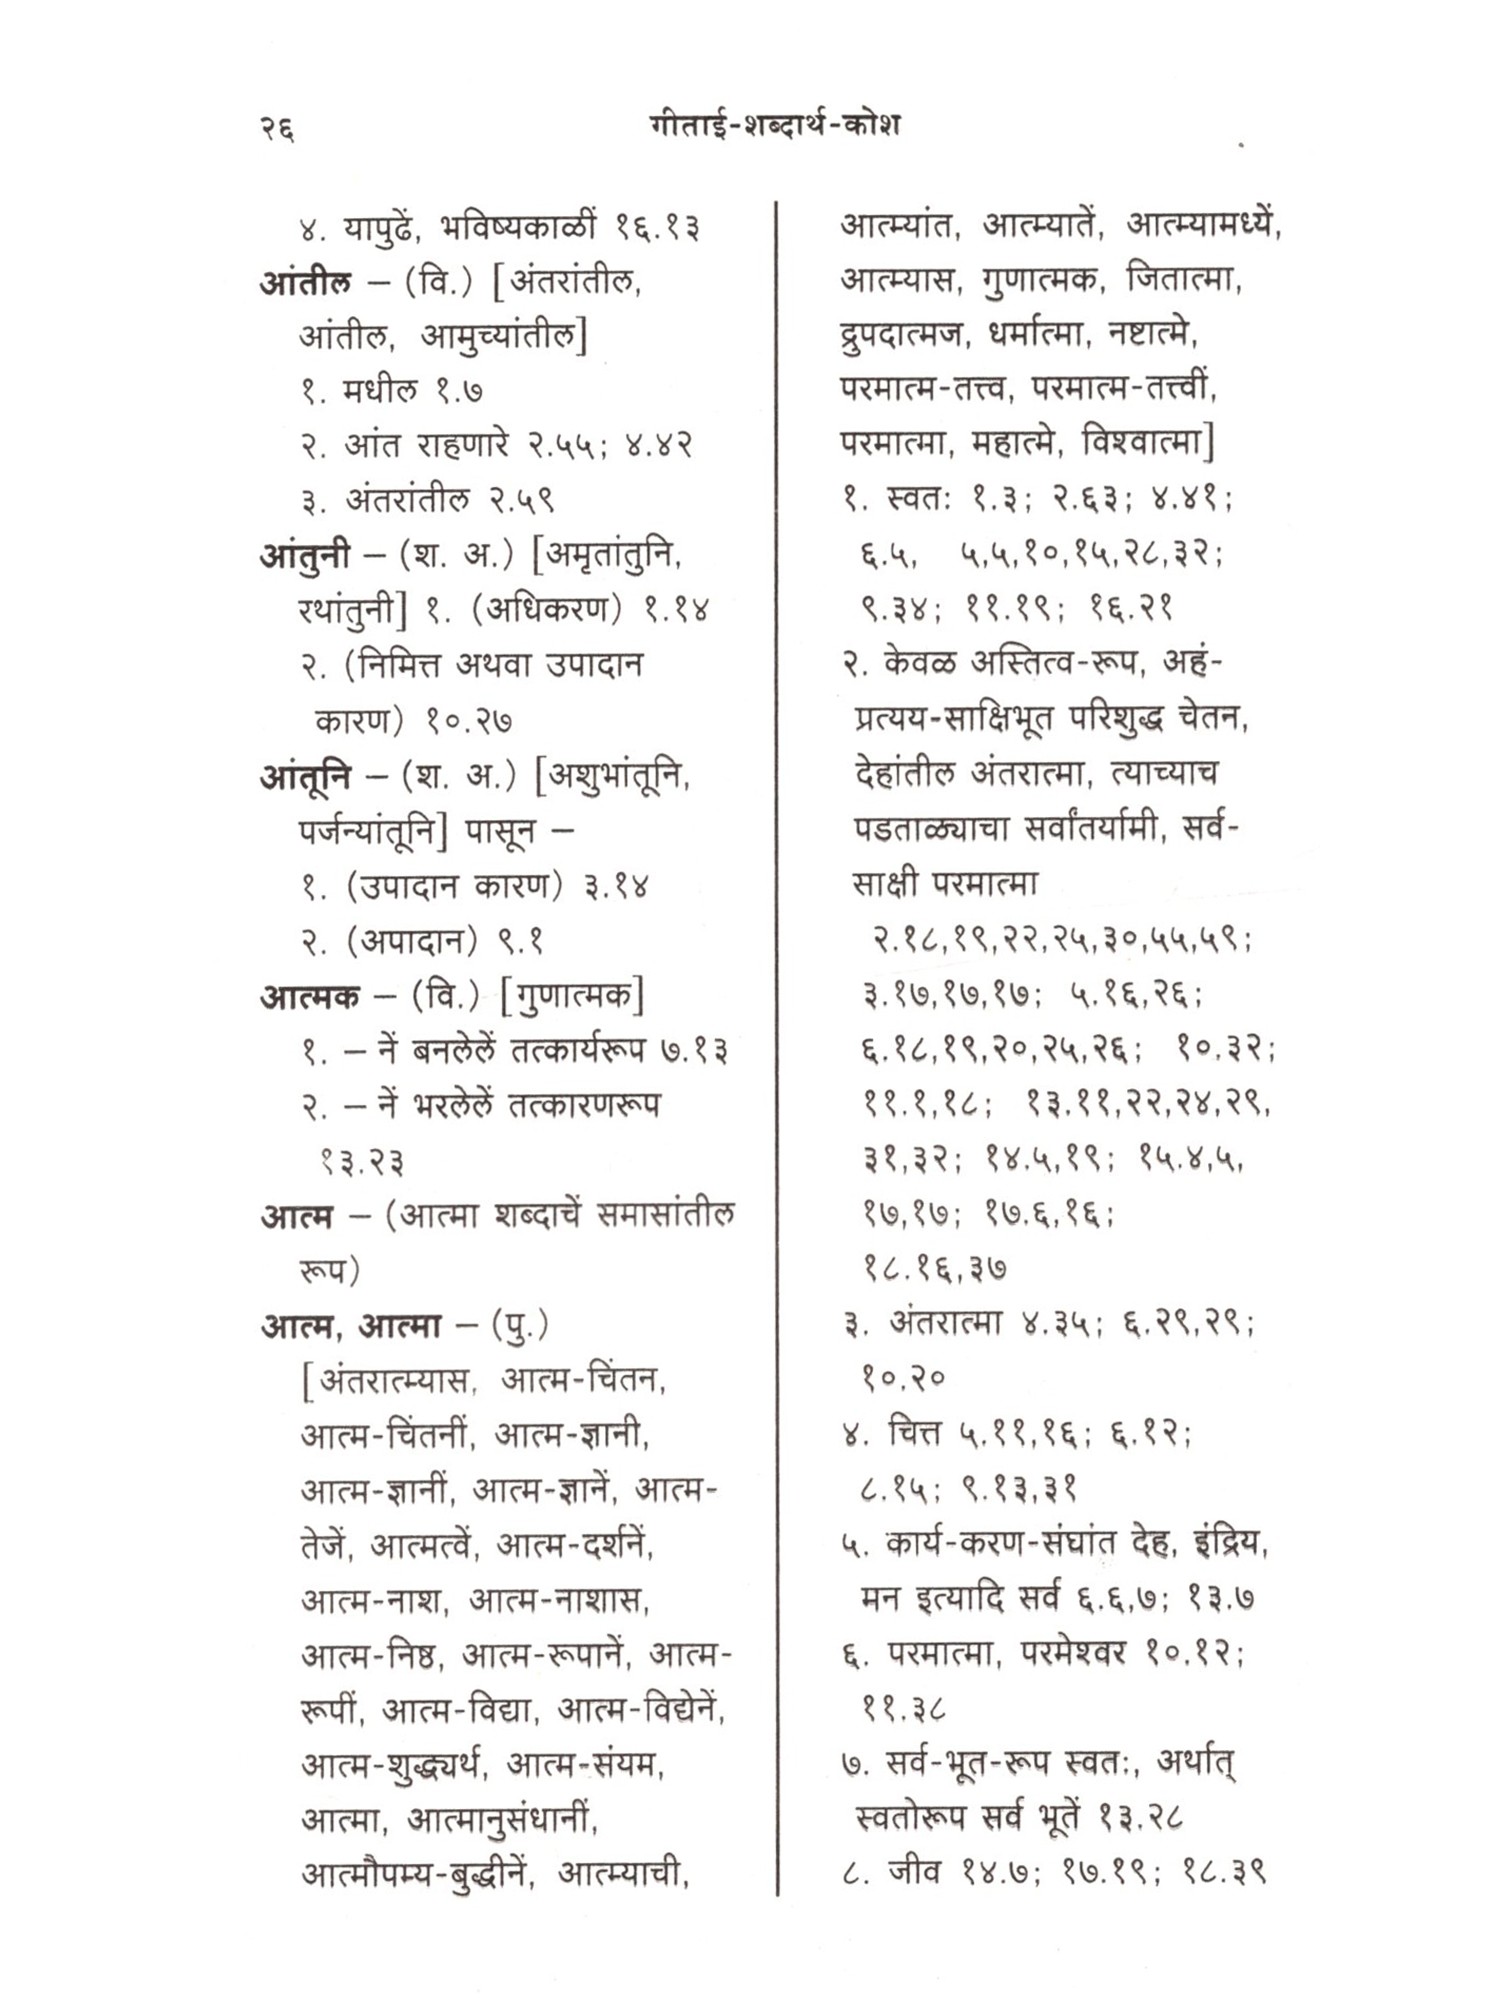 २६
गीताई-शब्दार्थ-कोश
४. यापुढें, भविष्यकाळीं १६.१३
आंतील – (वि.) [अंतरांतील,
आंतील, आमुच्यांतील]
१. मधील १.७
२. आंत राहणारे २.५५; ४.४२
३. अंतरांतील २.५९
आंतुनी – (श. अ.) [अमृतांतुनि,
रथांतुनी] १. (अधिकरण) १.१४
२. (निमित्त अथवा उपादान
कारण) १०.२७
आंतूनि – (श. अ.) [अशुभांतूनि,
पर्जन्यांतूनि] पासून –
१. (उपादान कारण) ३.१४
२. (अपादान) ९.१
आत्मक – (वि.) [गुणात्मक]
१. – नें बनलेलें तत्कार्यरूप ७.१३
२. – नें भरलेलें तत्कारणरूप
१३.२३
आत्म – (आत्मा शब्दाचें समासांतील
रूप)
आत्म, आत्मा – (पु.)
[अंतरात्म्यास, आत्म-चिंतन,
आत्म-चिंतनीं, आत्म-ज्ञानी,
आत्म-ज्ञानीं, आत्म-ज्ञानें, आत्म-
तेजें, आत्मत्वें, आत्म-दर्शनें,
आत्म-नाश, आत्म-नाशास,
आत्म-निष्ठ, आत्म-रूपानें, आत्म-
रूपीं, आत्म-विद्या, आत्म-विद्येनें,
आत्म-शुद्ध्यर्थ, आत्म-संयम,
आत्मा, आत्मानुसंधानीं,
आत्मौपम्य-बुद्धीनें, आत्म्याची,
आत्म्यांत, आत्म्यातें, आत्म्यामध्यें,
आत्म्यास, गुणात्मक, जितात्मा,
द्रुपदात्मज, धर्मात्मा, नष्टात्मे,
परमात्म-तत्त्व, परमात्म-तत्त्वीं,
परमात्मा, महात्मे, विश्वात्मा]
१. स्वतः १.३; २.६३; ४.४१;
६.५, ५,५,१०,१५,२८,३२;
९.३४; ११.१९; १६.२१
२. केवळ अस्तित्व-रूप, अहं-
प्रत्यय-साक्षिभूत परिशुद्ध चेतन,
देहांतील अंतरात्मा, त्याच्याच
पडताळ्याचा सर्वांतर्यामी, सर्व-
साक्षी परमात्मा
२.१८,१९,२२,२५,३०,५५,५९;
३.१७,१७,१७; ५.१६,२६;
६.१८,१९,२०,२५,२६; १०.३२;
११.१,१८; १३.११,२२,२४,२९,
३१,३२; १४.५,१९; १५.४,५,
१७,१७; १७.६,१६;
१८.१६,३७
३. अंतरात्मा ४.३५; ६.२९,२९;
१०.२०
४. चित्त ५.११,१६; ६.१२;
८.१५; ९.१३,३१
५. कार्य-करण-संघांत देह, इंद्रिय,
मन इत्यादि सर्व ६.६,७; १३.७
६. परमात्मा, परमेश्वर १०.१२;
११.३८
७. सर्व-भूत-रूप स्वतः, अर्थात्
स्वतोरूप सर्व भूतें १३.२८
८. जीव १४.७; १७.१९; १८.३९